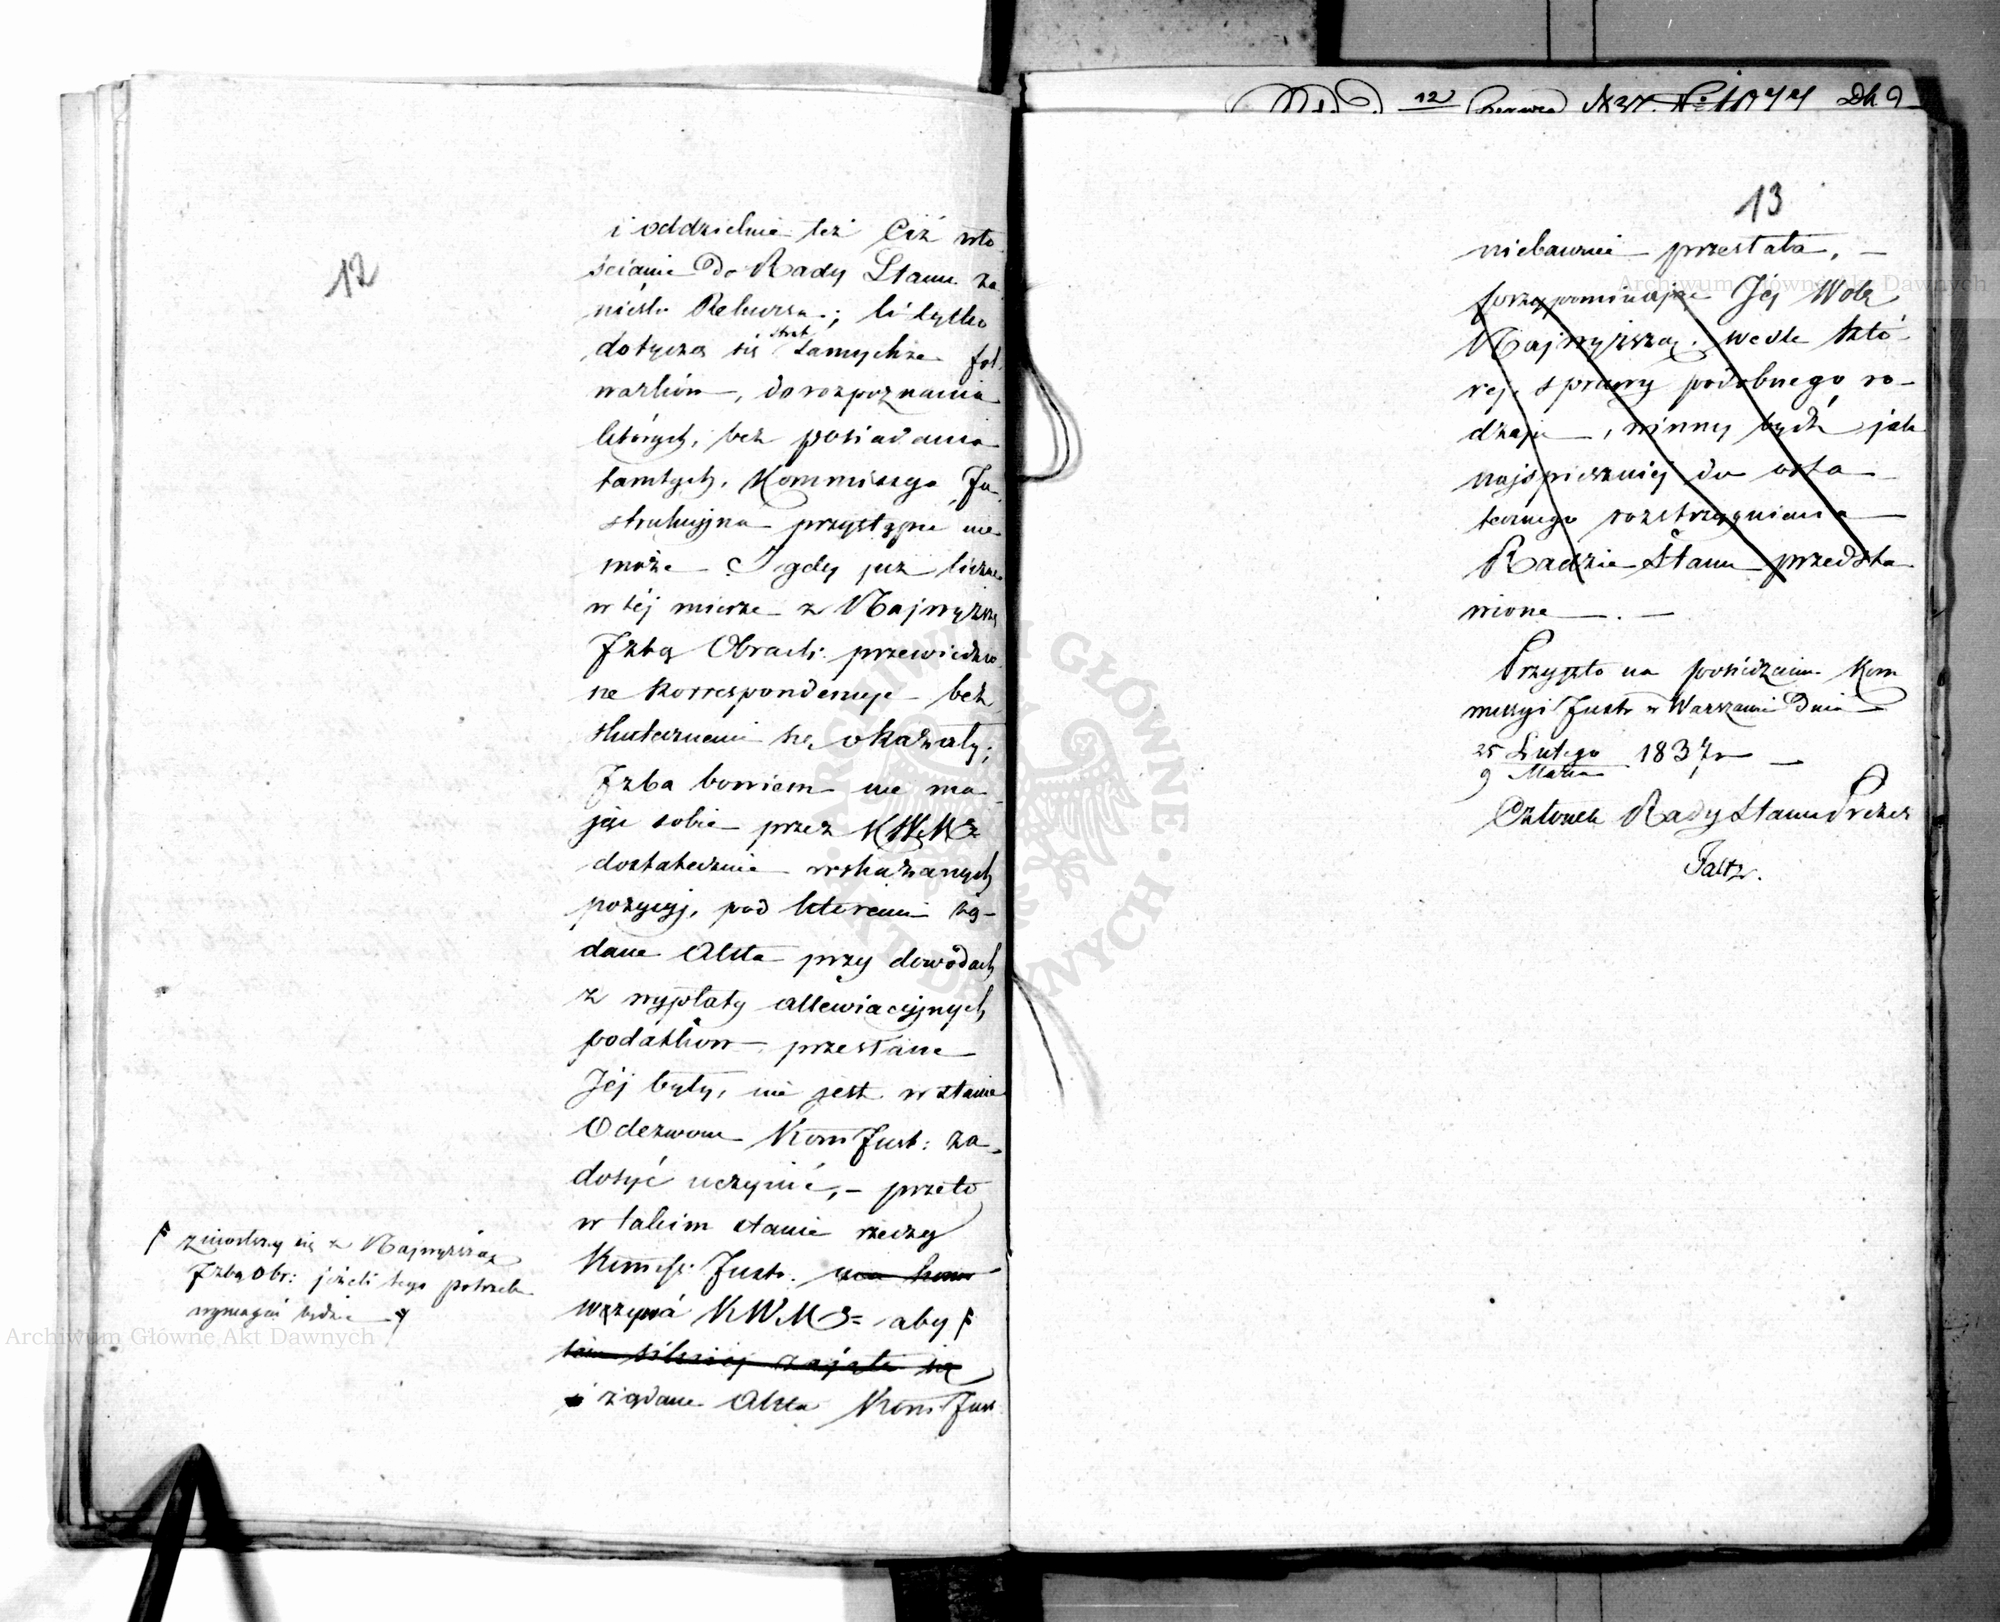 12
i oddzielnie też Ciż wło
ścianie do Rady Stanu za
nieśli Rekursa; li tylko
dotyczą się strat tamychże fol
warków, do rozpoznania
których, bez posiadania
tamtych, Kommissya In
strukcyjna przystąpić nie
może. I gdy już liczne
w téj mierze z Najwyższą
Izbą Obrach: przewiedzio
ne Korrespondencye bez
skutecznemi się okazały;
Izba bowiem nie ma
jąc sobie przez KWMZ
dostatecznie wskazanych
pozycyj, pod któremi żą-
dane Akta przy dowodach
z wypłaty allewiacyjnych
podatków przesłane
Jéj były, nie jest w stanie
Odezwom Kom Inst: za
dosyć uczynić, – przeto
w takim stanie rzeczy
Kommiss: Instr.
wzywa KWMZ aby
tém silniej zajęła się
i żądane Akta Kom Inst
zniosłszy się z Najwyższą
Izbą Obr: jeżeli tego potrzeba
wymagać będzie
12 Czerwca 1837. No 1077
13
niebawnie przesłała. –
przypominając Jej Wolę
Najwyższą. wedle któ-
rej, sprawy podobnego ro-
dzaju, winny bydź jak
najspieszniej do osta
tecznego rozstrzygnienia
Radzie Stanu przedsta
wione. –
Przyszło na posiedzeniu Kom
missyi Instr w Warszawie Dnia
25 Lutego 1837 r
9 Marca
Członek Rady Stanu Prezes
Faltz.
Archiwum Główne Akt Dawnych
Archiwum Główne Akt Dawnych
ARCHIWUM GŁÓWNE AKT DAWNYCH